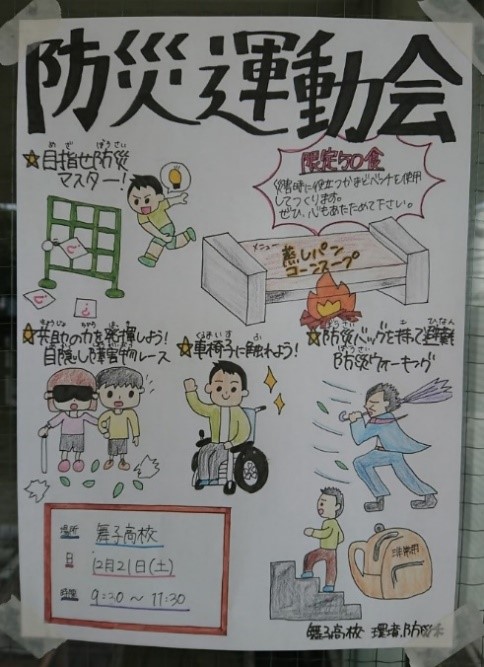 防災運動会
目指せ防災
マスター!
限定50食
災害時に役立つかまどベンチを使用
してつくります。
ぜひ、心もあたためて下さい。
メニュー
蒸しパン
コーンスープ
共助の力を発揮しよう!
目隠し障害物レース
車椅子に触れよう!
防災バッグを持って避難
防災ウォーキング
場所 舞子高校
日 12月21日(土)
時間 9:30〜11:30
非常用
舞子高校 環境防災科